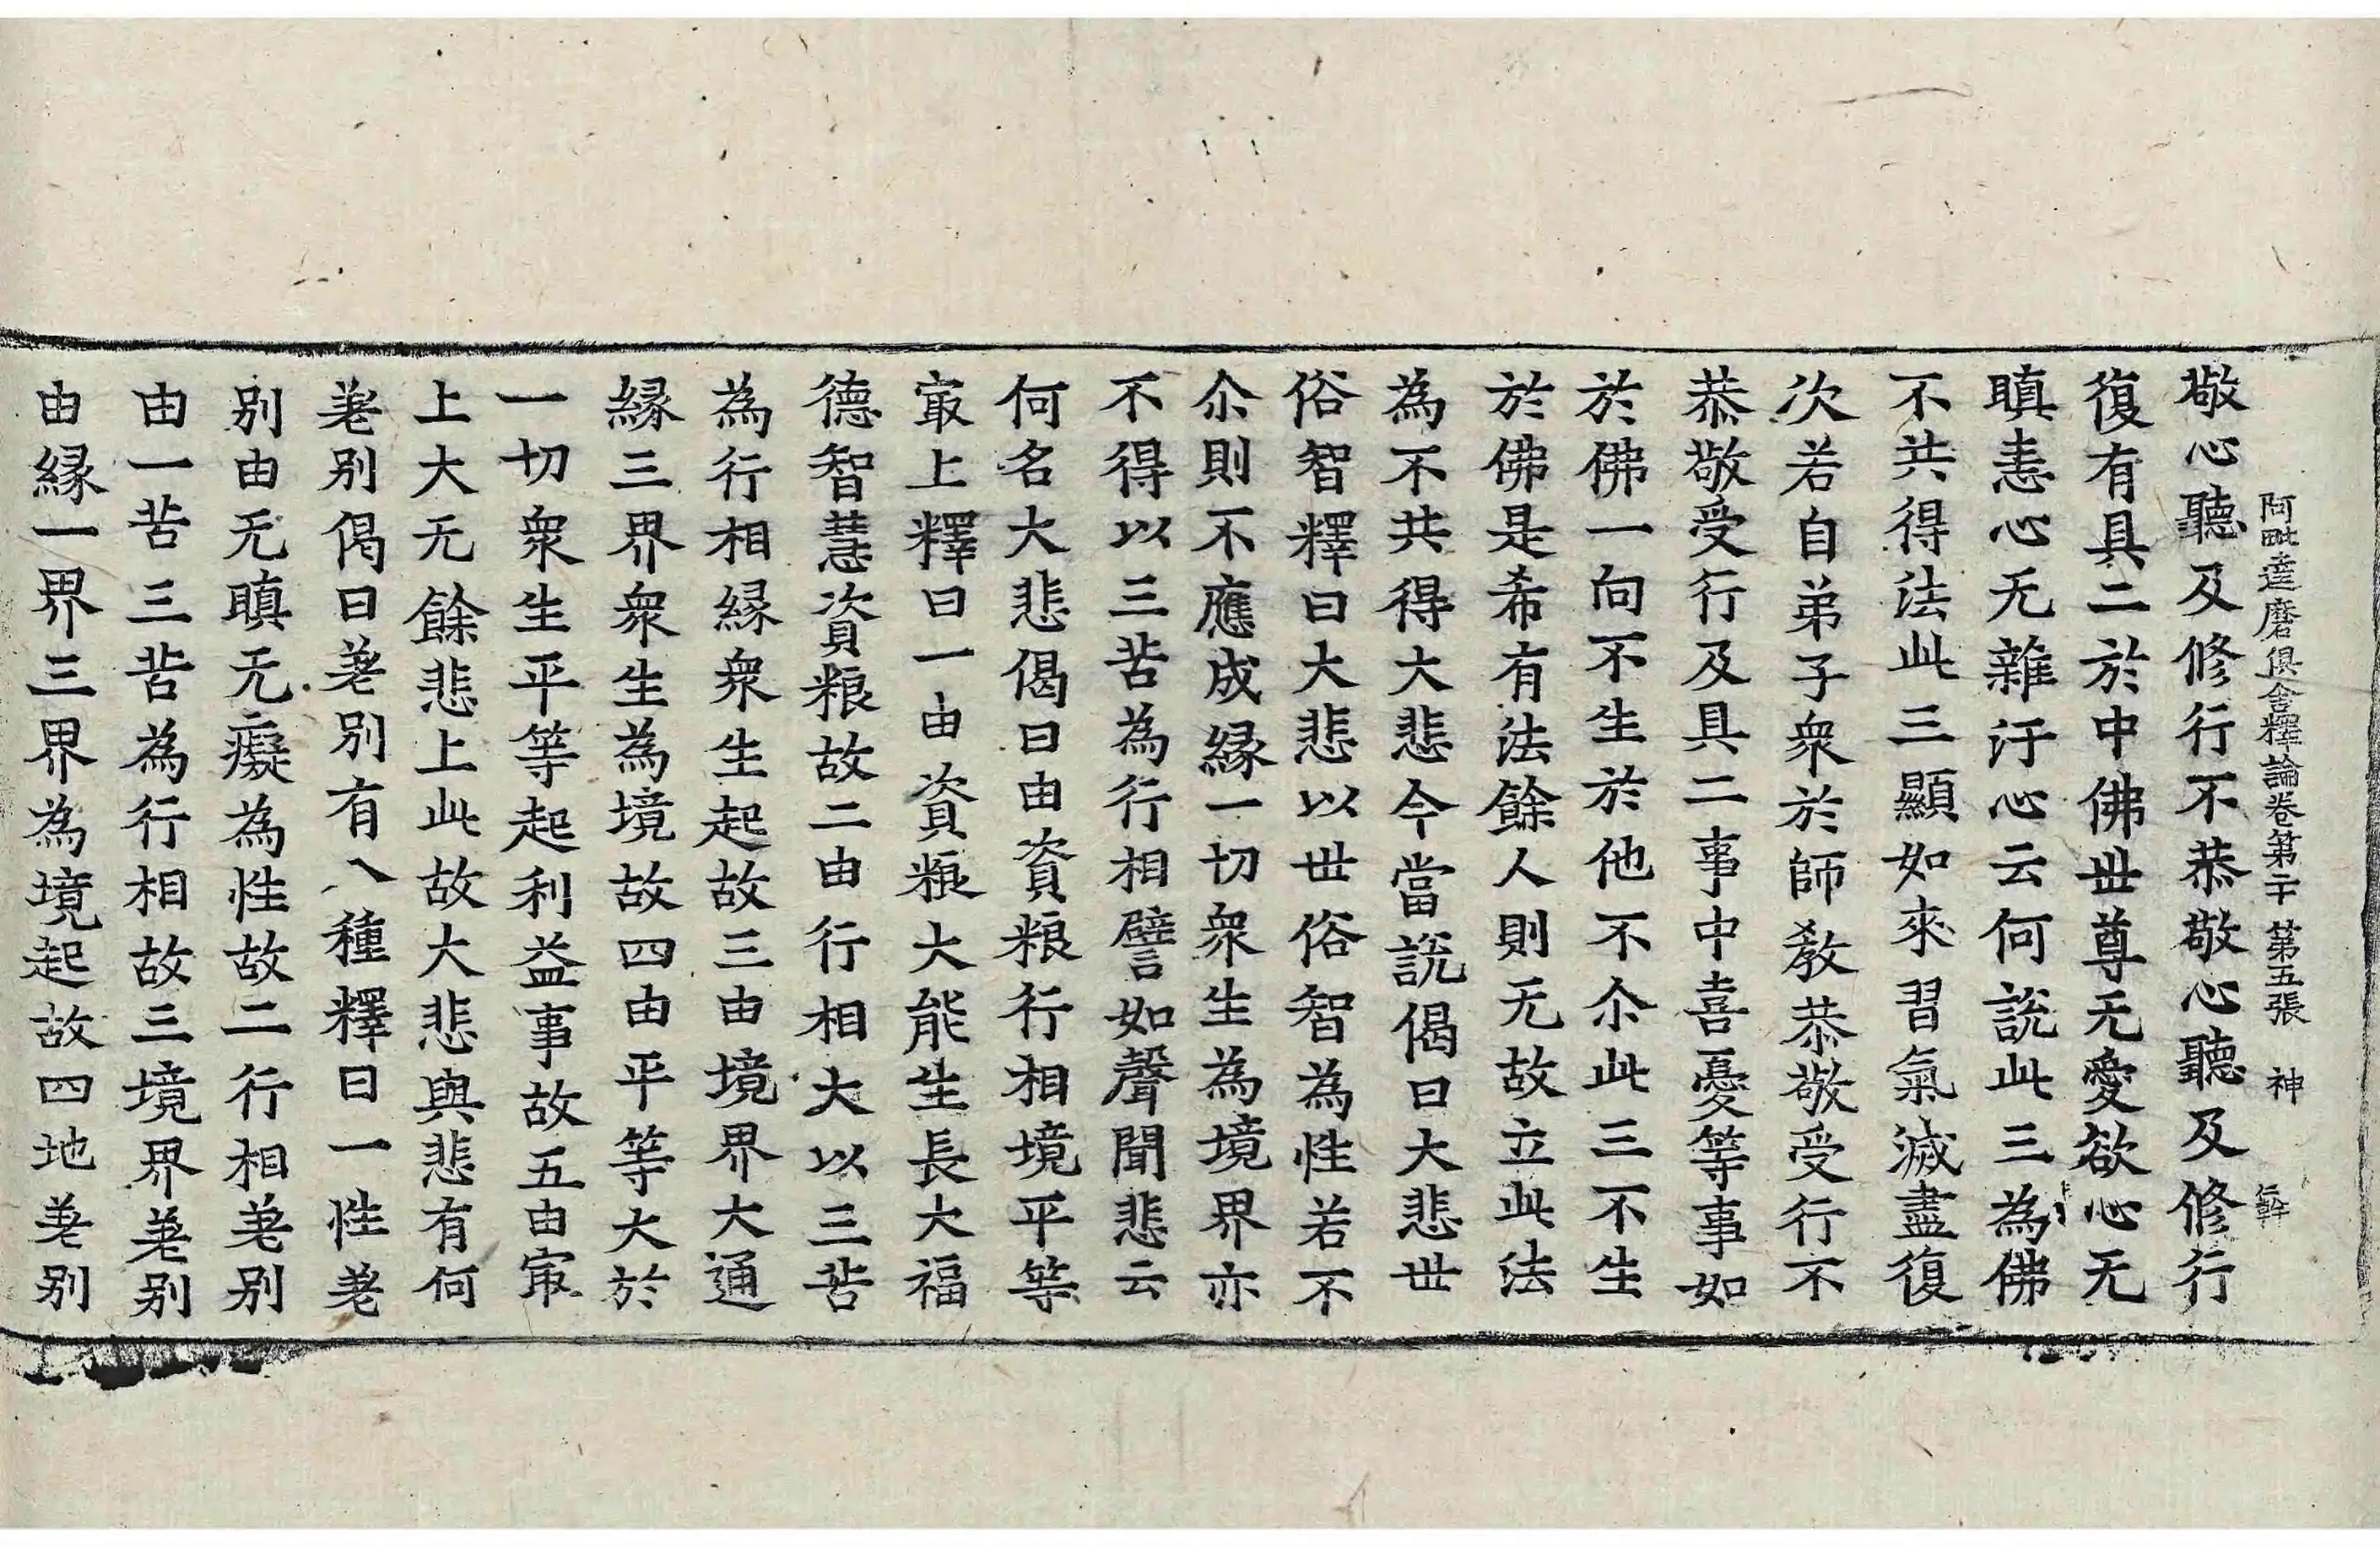 阿毗達磨俱舍釋論卷第二十 第五張 神
敬心聽及修行不恭敬心聽及修行
復有具二於中佛世尊无愛欲心无
瞋恚心无雜汙心云何說此三為佛
不共得法此三顯如來習氣滅盡復
次若自弟子衆於師教恭敬受行不
恭敬受行及具二事中喜憂等事如
於佛一向不生於他不尒此三不生
於佛是希有法餘人則无故立此法
為不共得大悲今當說偈曰大悲世
俗智釋曰大悲以世俗智為性若不
尒則不應成緣一切衆生為境界亦
不得以三苦為行相譬如聲聞悲云
何名大悲偈曰由資粮行相境平等
寂上釋曰一由資粮大能生長大福
德智慧資粮故二由行相大以三苦
為行相緣衆生起故三由境界大通
緣三界衆生為境故四由平等大於
一切衆生平等起利益事故五由寂
上大无餘悲上此故大悲與悲有何
差別偈曰差別有八種釋曰一性差
別由无瞋无癡為性故二行相差別
由一苦三苦為行相故三境界差別
由緣一界三界為境起故四地差別